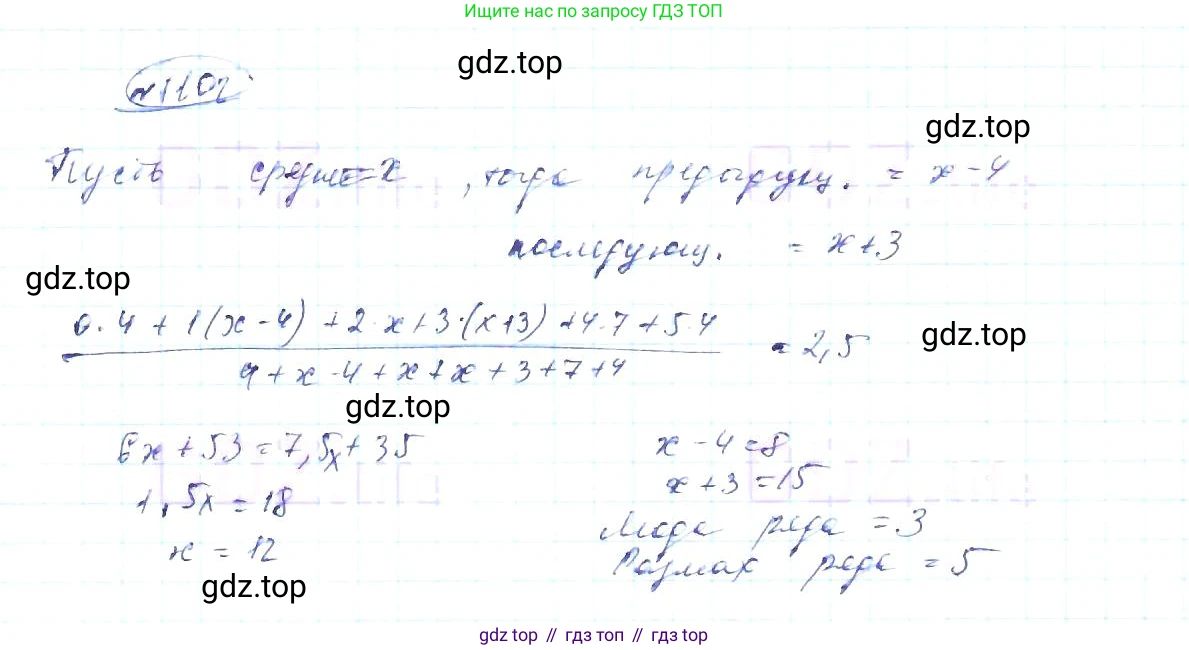 Ищите нас по запросу ГДЗ ТОП
gdz.top
№1102
gdz.top
Пусть средне=x , тогда предыдущ. = x-4
последующ. = x+3
gdz.top
0·4 + 1(x-4) +2·x+3·(x+3) +4·7+5·4
gdz.top
4+x-4+x+x+3+7+4
= 2,5
gdz.top
6x+53=7,5x+35
x-4=8
1,5x=18
x+3=15
x=12
Мода ряда =3
Размах ряда =5
gdz.top
gdz top // гдз топ // гдз top